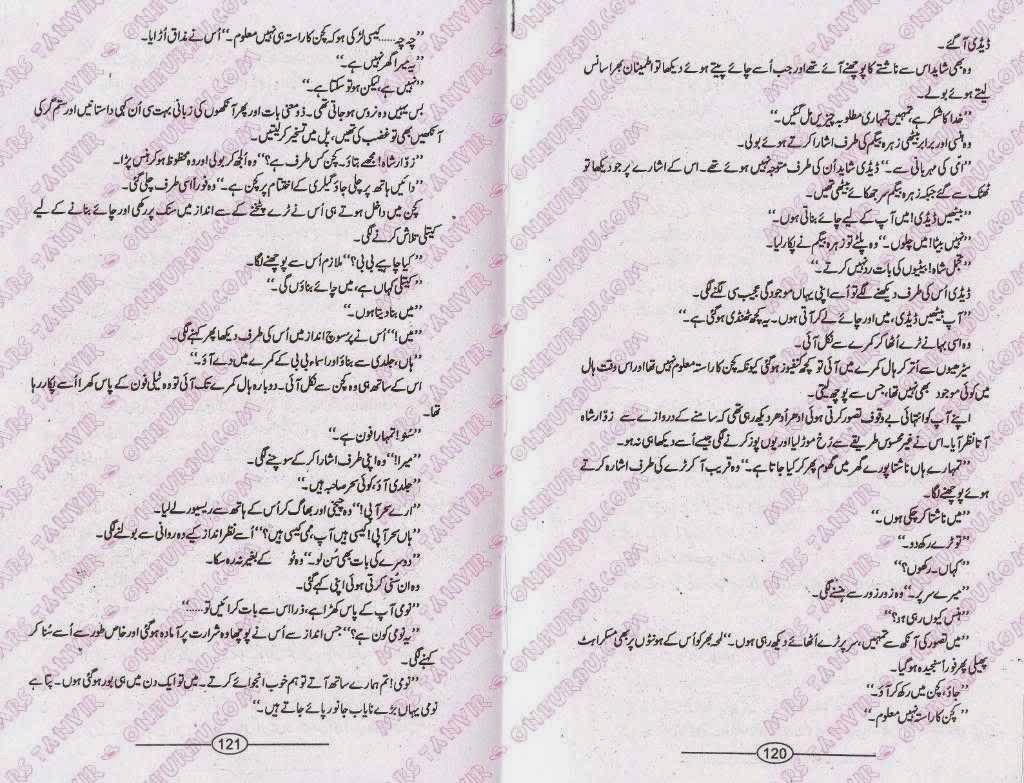 ڈیڈی آ گئے۔
وہ بھی شاید اس سے ناشتے کا پوچھنے آئے تھے اور جب اُسے چائے پیتے ہوئے دیکھا تو اطمینان بھرا سانس
لیتے ہوئے بولے۔
’’خدا کا شکر ہے، تمہیں تمہاری مطلوبہ چیزیں مل گئیں۔‘‘
وہ ہنسی اور برابر بیٹھی زہرہ بیگم کی طرف اشارا کرتے ہوئے بولی۔
’’امّی کی مہربانی سے۔‘‘ ڈیڈی شاید اُن کی طرف متوجہ نہیں ہوئے تھے۔ اس کے اشارے پر جو دیکھا تو
ٹھٹک سے گئے جبکہ زہرہ بیگم سر جھکائے بیٹھی تھیں۔
’’بیٹھیں ڈیڈی! میں آپ کے لیے چائے بناتی ہوں۔‘‘
’’نہیں بیٹا! میں چلوں۔‘‘ وہ پلٹے تو زہرہ بیگم نے پکار لیا۔
’’تجمل شاہ! بیٹیوں کی بات رد نہیں کرتے۔‘‘
ڈیڈی اُس کی طرف دیکھنے لگے تو اُسے اپنی یہاں موجودگی عجیب سی لگنے لگی۔
’’آپ بیٹھیں ڈیڈی، میں اور چائے لے کر آتی ہوں۔ یہ کچھ ٹھنڈی ہو گئی ہے۔‘‘
وہ اسی بہانے ٹرے اُٹھا کر کمرے سے نکل آئی۔
سیڑھیوں سے اُتر کر ہال کمرے میں آئی تو کچھ کنفیوز ہو گئی کیونکہ کچن کا راستہ معلوم نہیں تھا اور اس وقت ہال
میں کوئی موجود بھی نہیں تھا، جس سے پوچھ لیتی۔
اپنے آپ کو انتہائی بے وقوف تصور کرتی ہوئی ادھر اُدھر دیکھ رہی تھی کہ سامنے کے دروازے سے زوّار شاہ
آتا نظر آیا۔ اس نے غیر محسوس طریقے سے رُخ موڑ لیا اور یوں پوز کرنے لگی جیسے اُسے دیکھا ہی نہ ہو۔
’’تمہارے ہاں ناشتا پورے گھر میں گھوم پھر کر کیا جاتا ہے۔‘‘ وہ قریب آ کر ٹرے کی طرف اشارہ کرتے
ہوئے پوچھنے لگا۔
’’میں ناشتا کر چکی ہوں۔‘‘
’’تو ٹرے رکھ دو۔‘‘
’’کہاں۔ رکھوں؟‘‘
’’میرے سر پر۔‘‘ وہ زور زور سے ہنسنے لگی۔
’’ہنس کیوں رہی ہو؟‘‘
’’میں تصور کی آنکھ سے تمہیں، سر پر ٹرے اُٹھائے دیکھ رہی ہوں۔‘‘ لمحہ بھر کو اُس کے ہونٹوں پر بھی مسکراہٹ
پھیلی پھر فوراً سنجیدہ ہو گیا۔
’’جاؤ، کچن میں رکھ کر آؤ۔‘‘
’’کچن کا راستہ نہیں معلوم۔‘‘
120
’’چہ چہ...... کیسی لڑکی ہو کہ کچن کا راستہ ہی نہیں معلوم۔‘‘ اُس نے مذاق اُڑایا۔
’’یہ میرا گھر نہیں ہے۔‘‘
’’نہیں ہے، لیکن ہو تو سکتا ہے۔‘‘
بس یہیں وہ نروس ہو جاتی تھی۔ ذو معنی بات اور پھر آنکھوں کی زبانی بہت سی اَن کہی داستانیں اور ستم گر کی
آنکھیں بھی تو غضب کی تھیں، پل میں تسخیر کر لیتیں۔
’’زوّار شاہ! مجھے بتاؤ۔ کچن کس طرف ہے؟‘‘ وہ اُلجھ کر بولی اور وہ محظوظ ہو کر ہنس پڑا۔
’’دائیں ہاتھ پر چلی جاؤ گیلری کے اختتام پر کچن ہے۔‘‘ وہ فوراً اسی طرف چلی گئی۔
کچن میں داخل ہوتے ہی اُس نے ٹرے پٹخنے کے سے انداز میں سنک پر رکھی اور چائے بنانے کے لیے
کیتلی تلاش کرنے لگی۔
’’کیا چاہیے بی بی؟‘‘ ملازم اُس سے پوچھنے لگا۔
’’کیتلی کہاں ہے، میں چائے بناؤں گی۔‘‘
’’میں بنا دیتا ہوں۔‘‘
’’میں!‘‘ اُس نے پرسوچ انداز میں اُس کی طرف دیکھا پھر کہنے لگی۔
’’ہاں، جلدی سے بناؤ اور اسماء بی بی کے کمرے میں دے آؤ۔‘‘
اس کے ساتھ ہی وہ کچن سے نکل آئی۔ دوبارہ ہال کمرے تک آئی تو وہ ٹیلی فون کے پاس کھڑا اُسے پکار رہا
تھا۔
’’سنو! تمہارا فون ہے۔‘‘
’’میرا!‘‘ وہ اپنی طرف اشارا کر کے سوچنے لگی۔
’’جلدی آؤ، کوئی سحر صاحبہ ہیں۔‘‘
’’ارے سحر آپی!‘‘ وہ چیخی اور بھاگ کر اُس کے ہاتھ سے ریسیور لے لیا۔
’’ہاں سحر آپی! کیسی ہیں آپ، ممی کیسی ہیں؟‘‘ اُسے نظر انداز کیے وہ روانی سے بولنے لگی۔
’’دوسرے کی بات بھی سُن لو۔‘‘ وہ ٹو کے بغیر نہ رہ سکا۔
وہ اَن سُنی کرتی ہوئی اپنی کہے گئی۔
’’نومی آپ کے پاس کھڑا ہے، ذرا اس سے بات کرائیں تو......‘‘
’’یہ نومی کون ہے؟‘‘ جس انداز سے اُس نے پوچھا وہ شرارت پر آمادہ ہو گئی اور خاص طور سے اُسے سُنا کر
کہنے لگی۔
’’نومی! تم ہمارے ساتھ آتے تو ہم خوب انجوائے کرتے۔ میں تو ایک دن میں ہی بور ہو گئی ہوں۔ پتا ہے
نومی یہاں بڑے نایاب جانور پائے جاتے ہیں۔‘‘
121